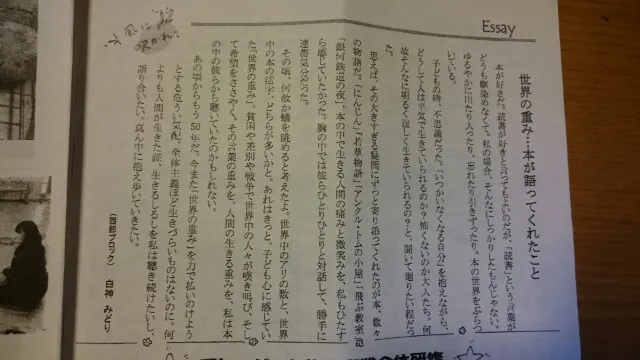 Essay
世界の重み…本が語ってくれたこと
本が好きだ。読書が好きと言ってもよいのだが、「読書」という言葉が
どうも馴染めなくて。私の場合、そんなにしっかりしたもんじゃない。
ゆるやかに出たり入ったり、忘れたり引きずったり。本の世界をぶらつ
いている。
子どもの時、不思議だった。「いつかいなくなる自分」を抱えながら、
どうして人は平気で生きていられるのか?怖くないのか大人たち。何
故そんなに明るく逞しく生きていられるの?と、聞いて廻りたい程だっ
た。
思えば、その大きすぎる疑問にずっと寄り添ってくれたのが本、数々
の物語だ。「にんじん」「若草物語」「アンクル・トムの小屋」「飛ぶ教室」
「銀河鉄道の夜」。本の中で生きる人間の痛みと微笑みを、私もひたす
ら感じていたかった。胸の中では彼らひとりひとりと対話して、勝手に
連帯気分だった。
その頃、何故か蟻を眺めると考えたよ。世界中のアリの数と、世界
中の本の活字、どちらが多いかと。あれはきっと、子ども心に感じてい
た「世界の重み」。貧困や差別や戦争で世界中の人々が嘆き叫び、そし
て希望をささやく。その言葉の重みを、人間の生きる重みを、私は本
の中の彼らから聴いていたのかもしれない。
あの頃からもう50年だ。今また「世界の重み」を力で払いのけよう
とする危うい気配。全体主義ほど生きづらいものはないのに。何
よりも人間が生きた証、生きるしるしを私は聴き続けたいし、
語り合いたい。真ん中に抱え歩いていきたい。
(西部ブロック) 白神 みどり
風に
吹かれ